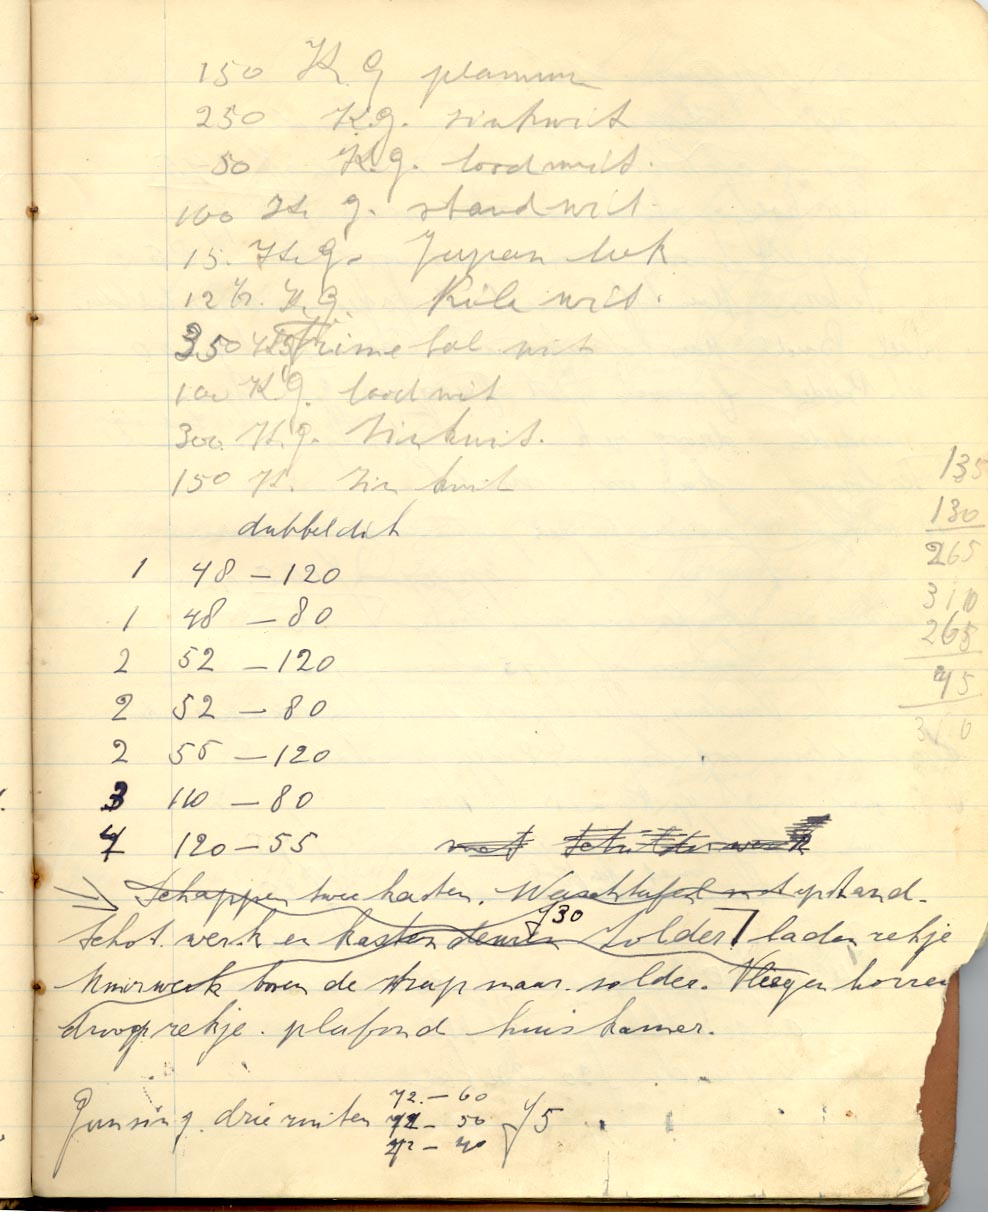 150 K.G plamuur
250 K.g. zinkwit
50 K.g. loodwit.
100 K. g. standwit
15. K.g. Japan lak
12 1/2. K.g. wit.
350 Kg wit
100 K.g. loodwit
300 K.g. zinkwit.
150 K. zinkwit
dubbeldik
1 48 — 120
1 48 — 80
2 52 — 120
2 52 — 80
2 55 — 120
3 110 — 80
4 120 — 55 met schilderwerk
Schappen twee kasten. Waschtafel met opstand.
schot. werk en kasten deuren f30 solder laden rekje
boven de trap naar. solder. Vliegen horren
droogrekje. plafond huiskamer.
drie ruiten
72. — 60
72 — 50 f5
72 — 40
135
130
265
310
265
45
310